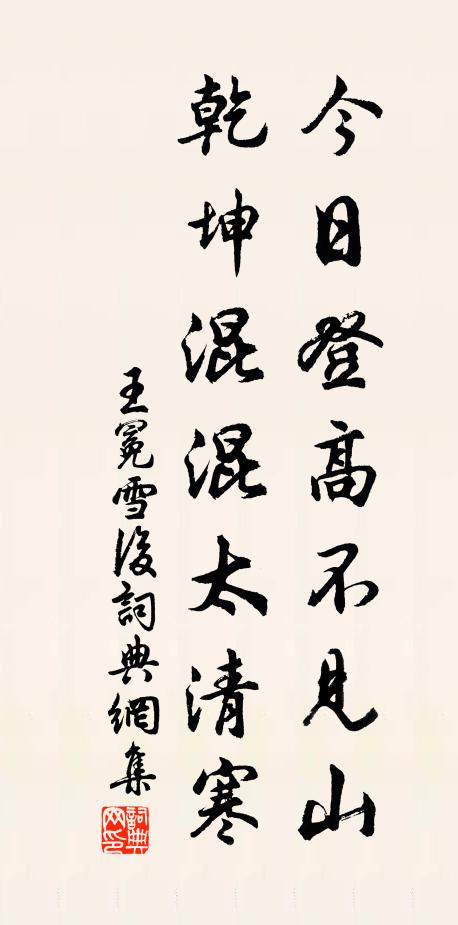 今日登高不見山
乾坤混混太清寒
王冕雪後詞典網集
詞典網印